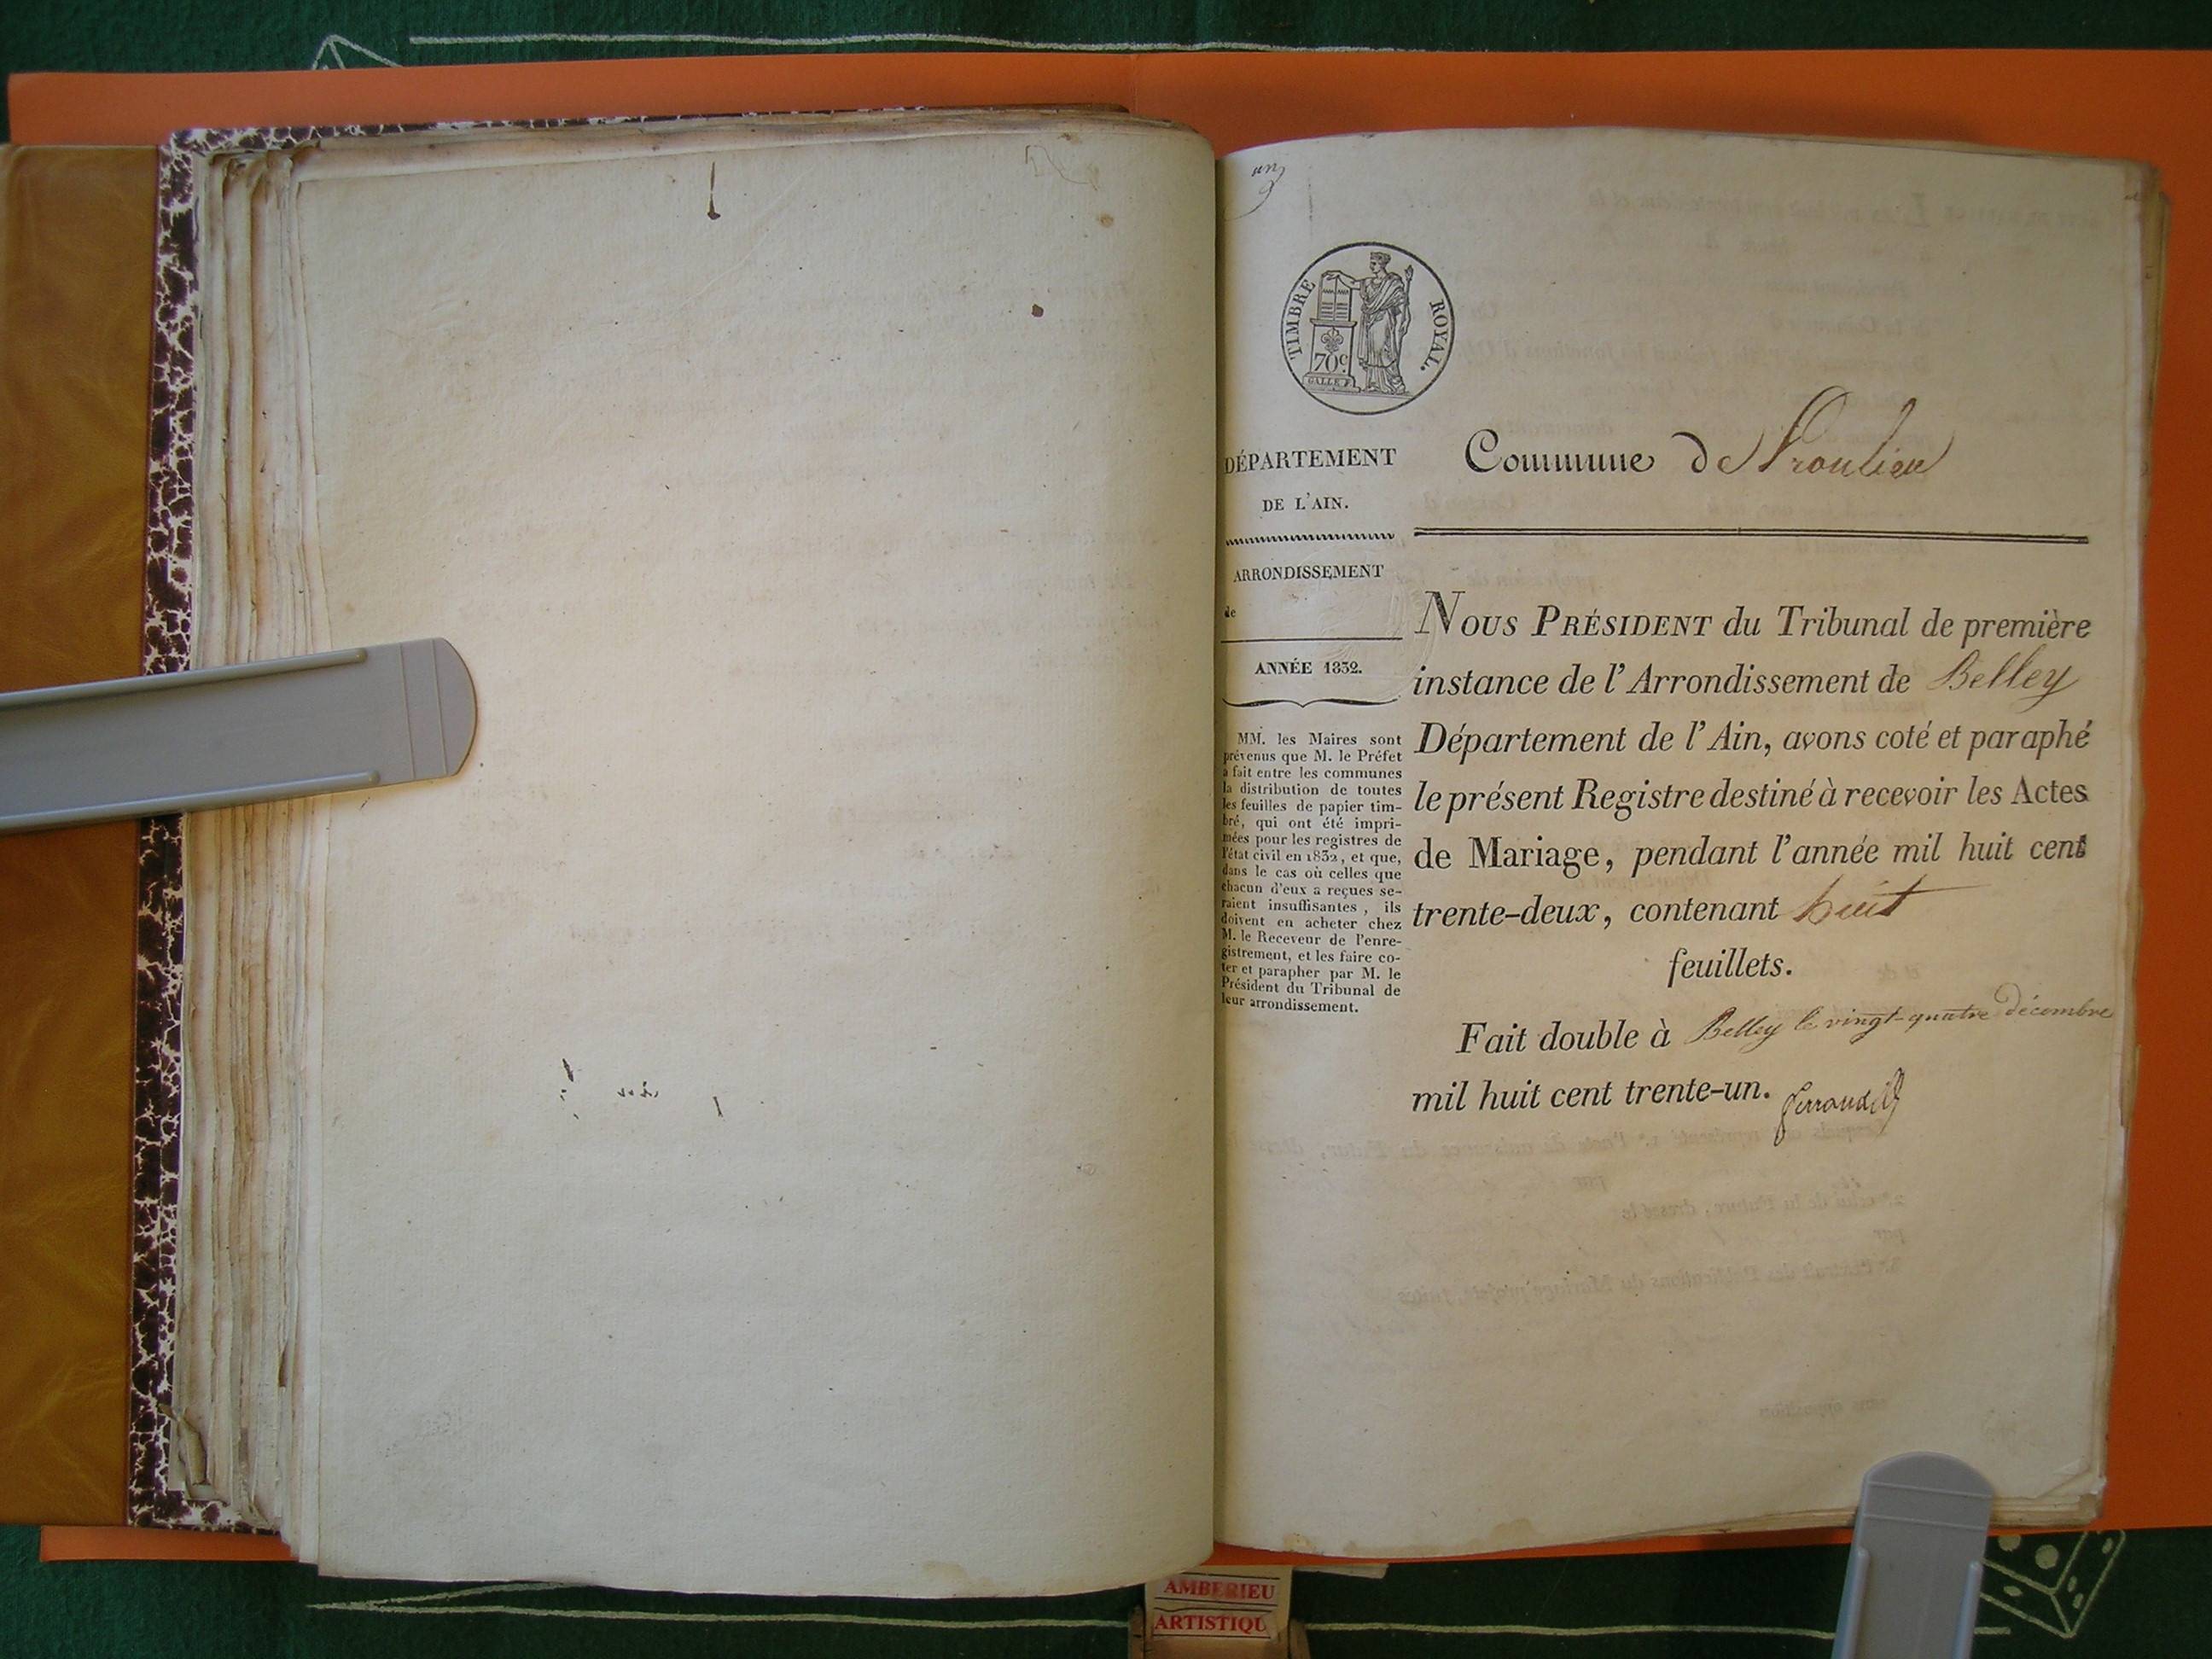 un
TIMBRE ROYAL.
70c
GALLE F.
DÉPARTEMENT
DE L'AIN.
ARRONDISSEMENT
de
ANNÉE 1832.
MM. les Maires sont
prévenus que M. le Préfet
a fait entre les communes
la distribution de toutes
les feuilles de papier tim-
bré, qui ont été impri-
mées pour les registres de
l'état civil en 1832, et que,
dans le cas où celles que
chacun d'eux a reçues se-
raient insuffisantes, ils
doivent en acheter chez
M. le Receveur de l'enre-
gistrement, et les faire co-
ter et parapher par M. le
Président du Tribunal de
leur arrondissement.
Commune de Proulieu
NOUS PRÉSIDENT du Tribunal de première
instance de l'Arrondissement de Belley
Département de l'Ain, avons coté et paraphé
le présent Registre destiné à recevoir les Actes
de Mariage, pendant l'année mil huit cent
trente-deux, contenant huit
feuillets.
Fait double à Belley le vingt-quatre décembre
mil huit cent trente-un.
AMBERIEU
ARTISTIQU